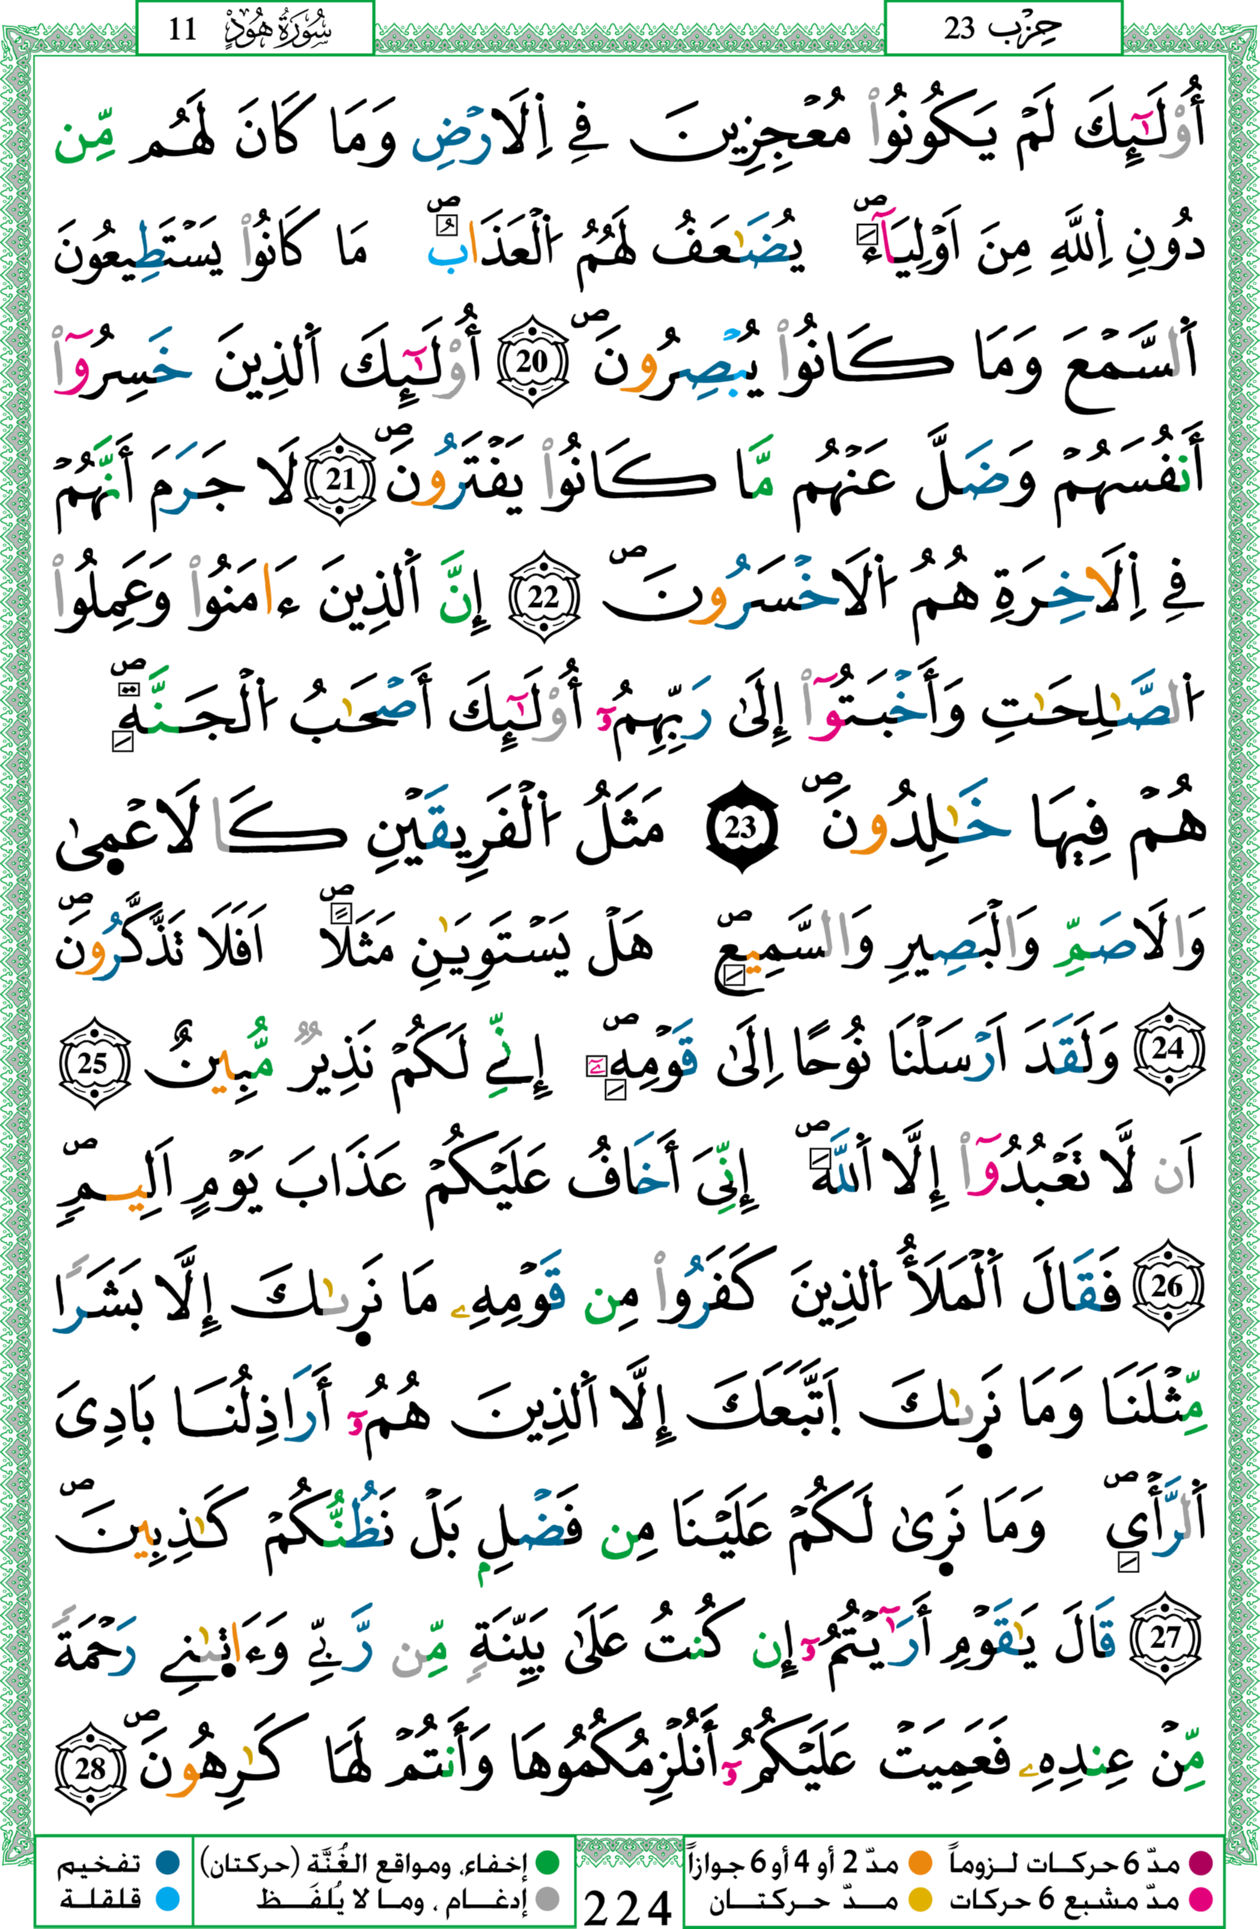 حِزْب 23
سُورَةُ هُودٍ 11
أُوْلَٰٓئِكَ لَمْ يَكُونُواْ مُعْجِزِينَ فِے اِ۬لَارْضِ وَمَا كَانَ لَهُم مِّن
دُونِ اِ۬للَّهِ مِنَ اَوْلِيَآءَۖ يُضَٰعَفُ لَهُمُ اُ۬لْعَذَابُۖ مَا كَانُواْ يَسْتَطِيعُونَ
اَ۬لسَّمْعَ وَمَا كَانُواْ يُبْصِرُونَۖ 20 أُوْلَٰٓئِكَ اَ۬لذِينَ خَسِرُوٓاْ
أَنفُسَهُمْ وَضَلَّ عَنْهُم مَّا كَانُواْ يَفْتَرُونَۖ 21 لَا جَرَمَ أَنَّهُمْ
فِے اِ۬لَاخِرَةِ هُمُ اُ۬لَاخْسَرُونَۖ 22 إِنَّ اَ۬لذِينَ ءَامَنُواْ وَعَمِلُواْ
اُ۬لصَّٰلِحَٰتِ وَأَخْبَتُوٓاْ إِلَىٰ رَبِّهِمُۥٓ أُوْلَٰٓئِكَ أَصْحَٰبُ اُ۬لْجَنَّةِۖ
هُمْ فِيهَا خَٰلِدُونَۖ 23 مَثَلُ اُ۬لْفَرِيقَيْنِ كَالَاعْمٜىٰ
وَالَاصَمِّ وَالْبَصِيرِ وَالسَّمِيعِۖ هَلْ يَسْتَوِيَٰنِ مَثَلًاۖ اَفَلَا تَذَّكَّرُونَۖ
24 وَلَقَدَ اَرْسَلْنَا نُوحًا اِلَىٰ قَوْمِهِۦٓۖ إِنِّے لَكُمْ نَذِيرٌ مُّبِينٌ 25
اَن لَّا تَعْبُدُوٓاْ إِلَّا اَ۬للَّهَۖ إِنِّيَ أَخَافُ عَلَيْكُمْ عَذَابَ يَوْمٍ اَلِيمٍۖ
26 فَقَالَ اَ۬لْمَلَأُ اُ۬لذِينَ كَفَرُواْ مِن قَوْمِهِۦ مَا نَرٜىٰكَ إِلَّا بَشَرًا
مِّثْلَنَا وَمَا نَرٜىٰكَ اَ۪تَّبَعَكَ إِلَّا اَ۬لذِينَ هُمُۥٓ أَرَاذِلُنَا بَادِيَ
اَ۬لرَّأْيِۖ وَمَا نَرٜىٰ لَكُمْ عَلَيْنَا مِن فَضْلِۢ بَلْ نَظُنُّكُمْ كَٰذِبِينَۖ
27 قَالَ يَٰقَوْمِ أَرَٰٓيْتُمُۥٓ إِن كُنتُ عَلَىٰ بَيِّنَةٍ مِّن رَّبِّے وَءَاتٜىٰنِے رَحْمَةً
مِّنْ عِندِهِۦ فَعَمِيَتْ عَلَيْكُمُۥٓ أَنُلْزِمُكُمُوهَا وَأَنتُمْ لَهَا كَٰرِهُونَۖ 28
مدّ 6 حركات لـزوماً مدّ 2 أو 4 أو 6 جوازاً
مدّ مشبع 6 حركات مدّ حركتـان
224
إخفاء، ومواقع الغُنَّة (حركتان) تفخيم
إدغـام ، ومـا لا يُلفَـظ قلقلة